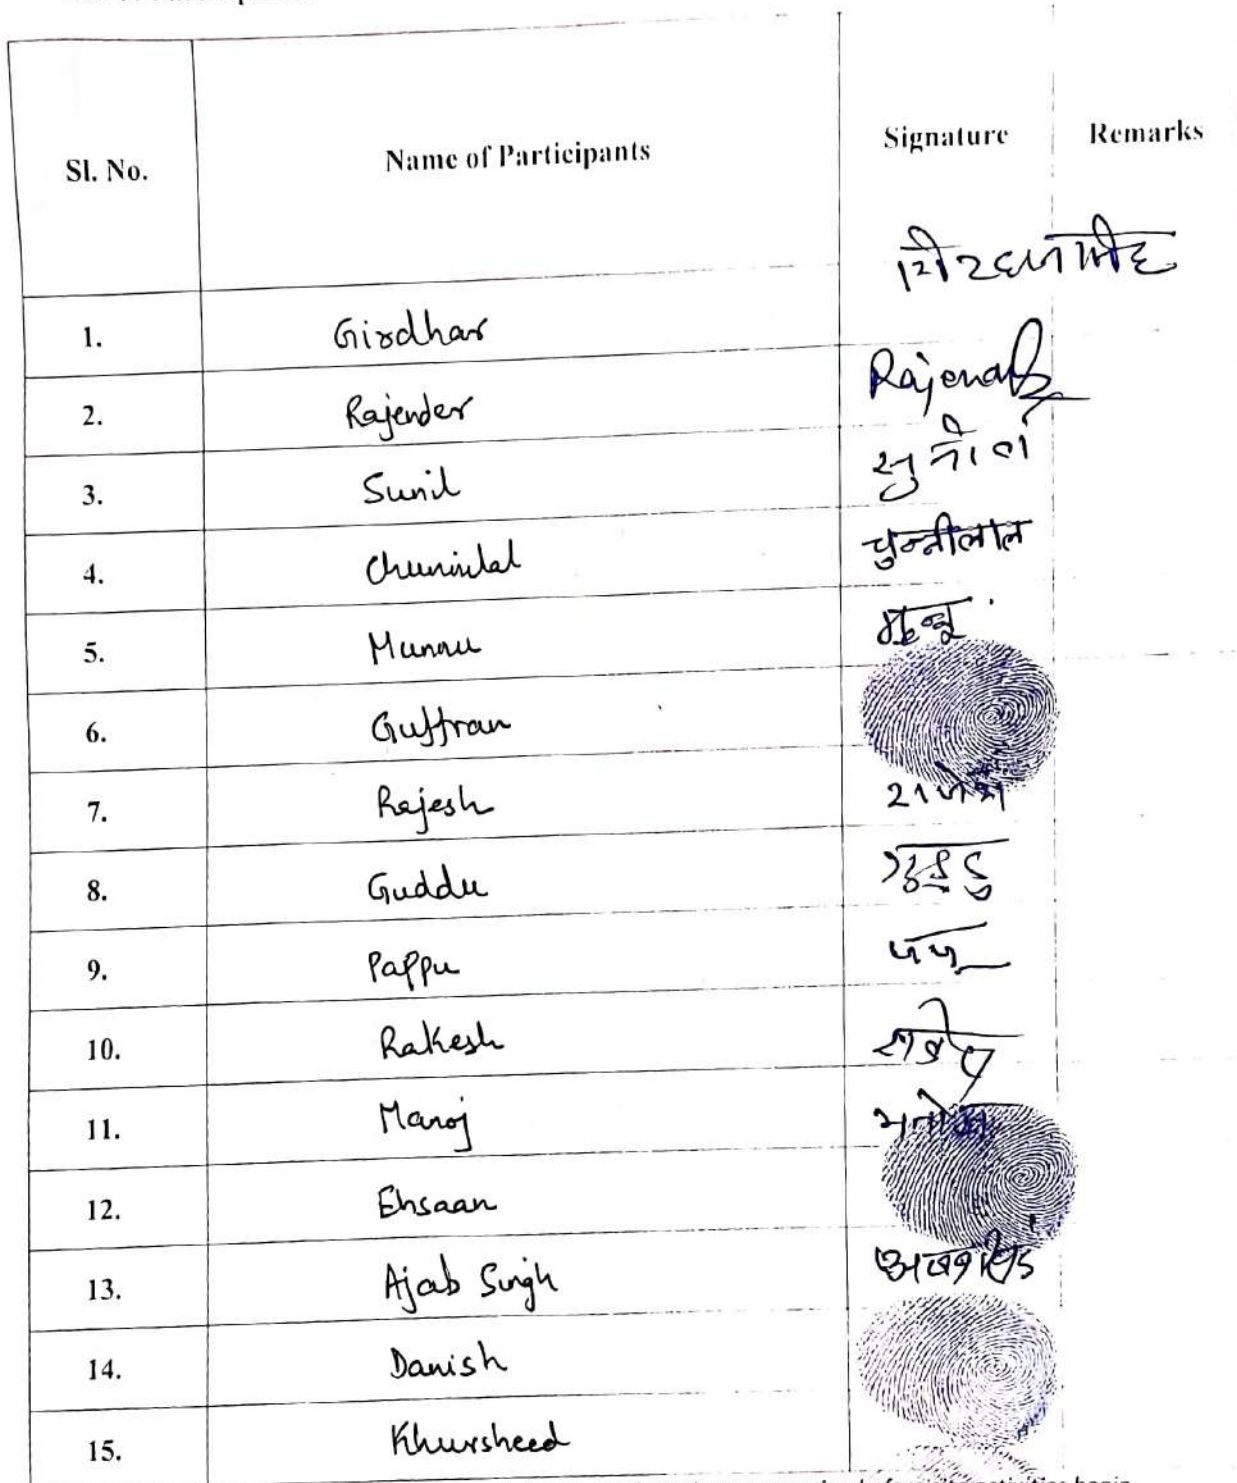 Sl. No. Name of Participants Signature Remarks
1. Girdhar
2. Rajender Rajender
3. Sunil सुनील
4. Chunnilal चुन्नीलाल
5. Munnu
6. Guffran
7. Rajesh राजेश
8. Guddu
9. Pappu पपू
10. Rakesh
11. Manoj मनोज
12. Ehsaan
13. Ajab Singh
14. Danish
15. Khursheed
activities begin